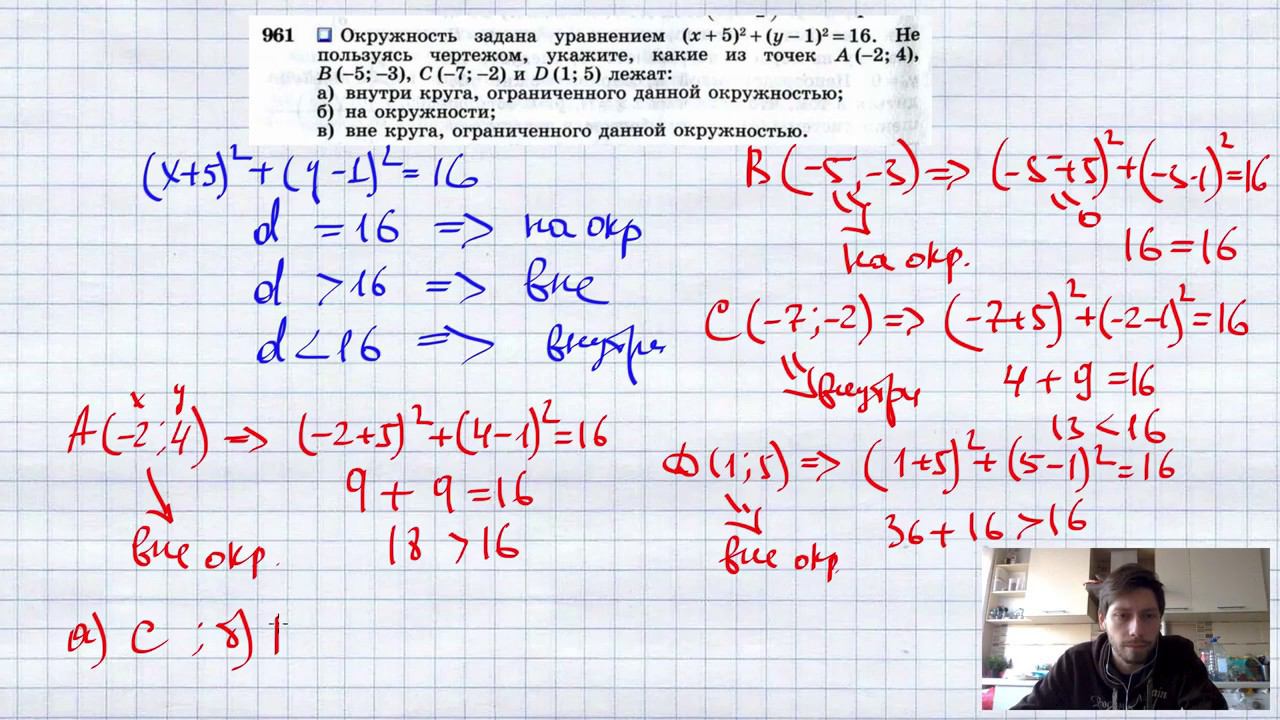 961 Окружность задана уравнением (x + 5)² + (y − 1)² = 16. Не
пользуясь чертежом, укажите, какие из точек A (−2; 4),
B (−5; −3), C (−7; −2) и D (1; 5) лежат:
а) внутри круга, ограниченного данной окружностью;
б) на окружности;
в) вне круга, ограниченного данной окружностью.
(x+5)²+(y−1)²=16
d =16 => на окр
d >16 => вне
d<16 => внутри
x y
A(−2;4) => (−2+5)²+(4−1)²=16
9 + 9 =16
18 >16
вне окр.
B(−5;−3) => (−5+5)²+(−3−1)²=16
0
16=16
на окр.
C(−7;−2) => (−7+5)²+(−2−1)²=16
внутри
4+9 =16
13<16
D(1;5) => (1+5)²+(5−1)²=16
36+16>16
вне окр.
а) C ; б)